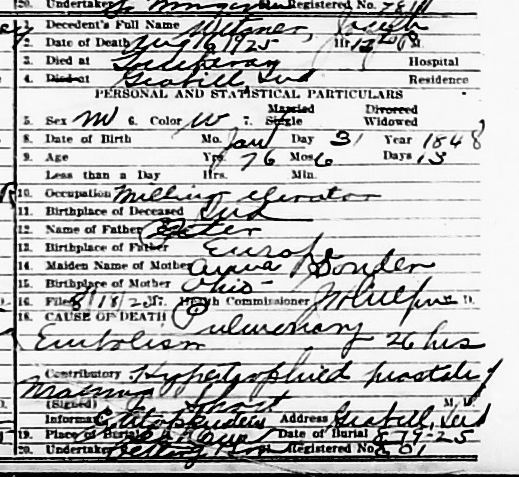 20. Undertaker Registered No. 781
1. Decedent's Full Name Jacob
2. Date of Death Aug 16 1925 Hr. 12 M.
3. Died at Hospital
4. Died at Grabill, Ind Residence
PERSONAL AND STATISTICAL PARTICULARS
Married Divorced
5. Sex M 6. Color W 7. Single Widowed
8. Date of Birth Mo. Jan Day 31 Year 1848
9. Age Yrs. 76 Mos. 6 Days 13
Less than a Day Hrs. Min.
10. Occupation Milling operator
11. Birthplace of Deceased Ind
12. Name of Father Peter
13. Birthplace of Father Europe
14. Maiden Name of Mother Anna Souder
15. Birthplace of Mother Ohio
16. Filed 8/18/25 17. Health Commissioner M. D.
18. CAUSE OF DEATH Pulmonary
Embolism 26 hrs
Contributory Hypertrophied prostate
(Signed) M. D.
Informant Address Grabill, Ind
19. Place of Burial Date of Burial 8-19-25
20. Undertaker Registered No. 801